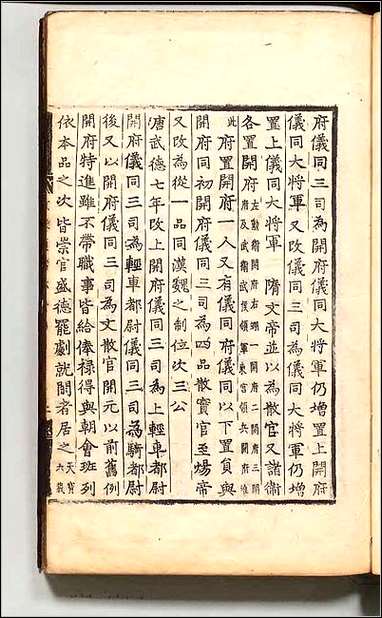 府儀同三司為開府儀同大將軍仍增置上開府
儀同大將軍又改儀同三司為儀同大將軍仍增
置上儀同大將軍 隋文帝並以為散官又諸衛
各置開府左勳衛開府右翊一開府二開府三開
府及武衛武候領軍東宮領兵開府准
此府置開府一人又有儀同府儀同以下置員與
開府同初開府儀同三司為四品散實官至煬帝
又改為從一品同漢魏之制位次三公
唐武德七年改上開府儀同三司為上輕車都尉
開府儀同三司為輕車都尉儀同三司為騎都尉
後又以開府儀同三司為文散官開元以前舊例
開府特進雖不帶職事皆給俸祿得與朝會班列
依本品之次皆崇官盛德罷劇就閒者居之天寶
六載